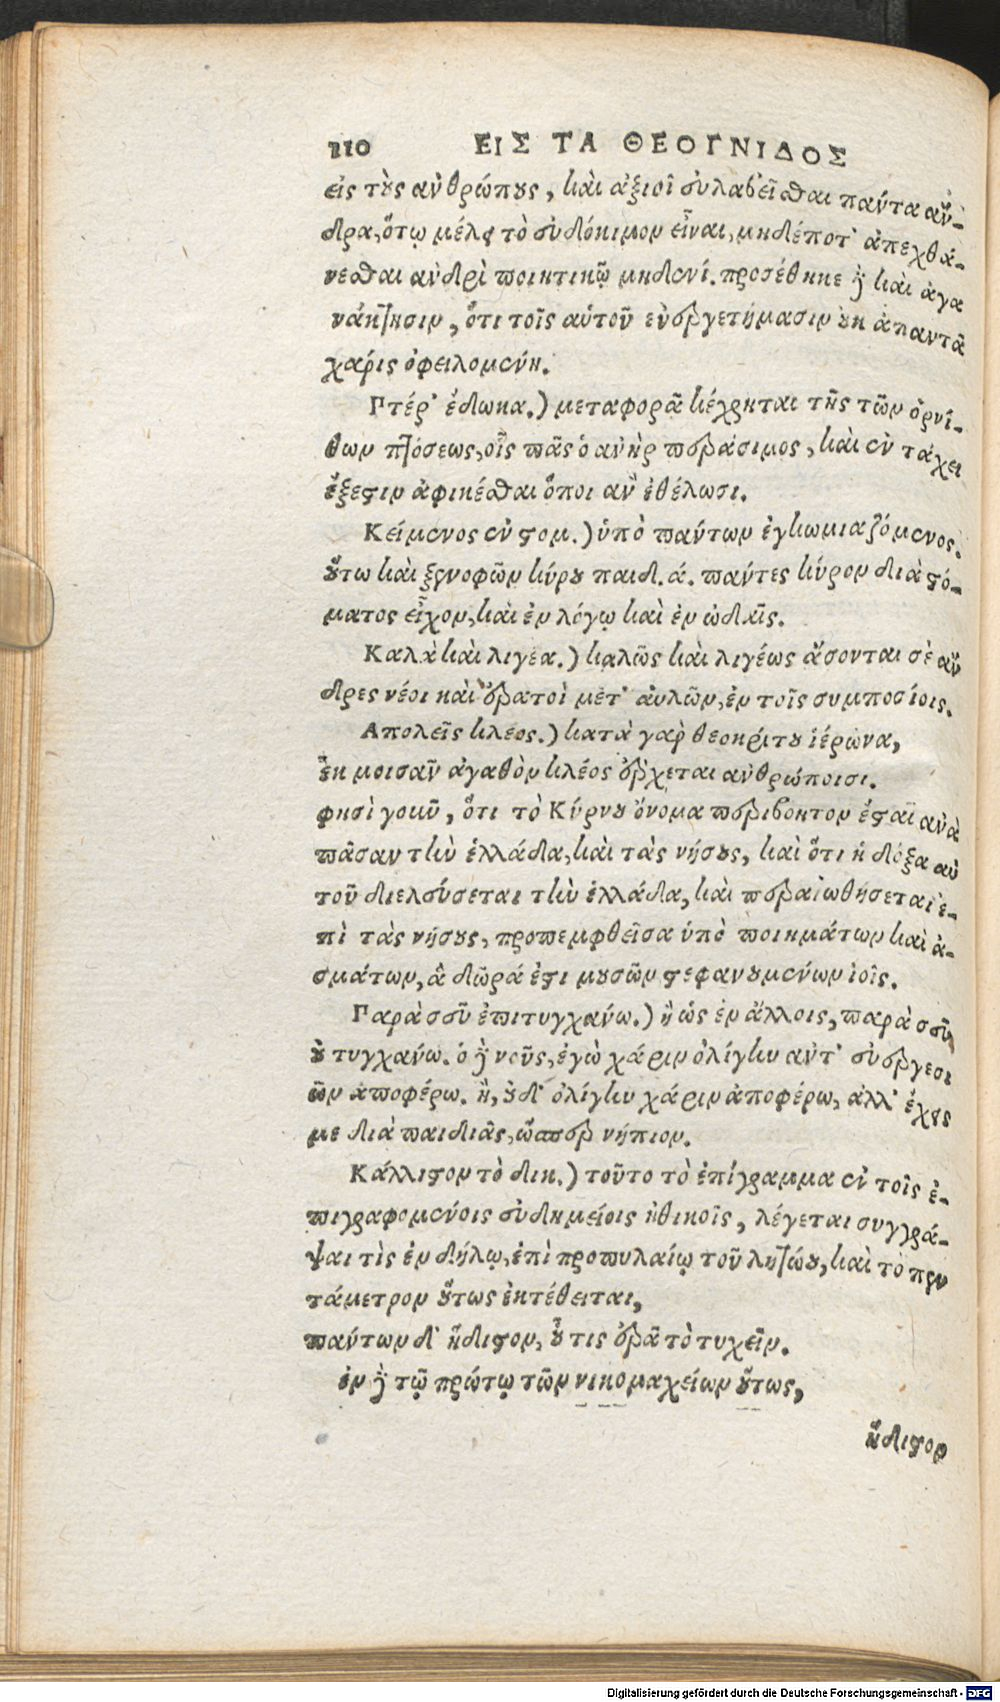 110 ΕΙΣ ΤΑ ΘΕΟΓΝΙΔΟΣ
εἰς τοὺς ἀνθρώπους, καὶ ἀξιοῖ εὐλαβεῖσθαι πάντα ἄν-
δρα, ὅτῳ μέλει τὸ εὐδόκιμον εἶναι, μηδέποτ᾽ ἀπεχθά-
νεσθαι ἀνδρὶ ποιητικῷ μηδενί. προσέθηκε δὲ καὶ ἀγα
νάκτησιν, ὅτι τοῖς αὑτοῦ εὐεργετήμασιν οὐκ ἀπαντᾶ
χάρις ὀφειλομένη.
Πτέρ᾽ ἔδωκα.) μεταφορᾶ κέχρηται τῆς τῶν ὀρνί-
θων πτόσεως, οἷς πᾶς ὁ ἀὴρ περάσιμος, καὶ ἐν τάχει
ἔξεστιν ἀφικέσθαι ὅποι ἂν ἐθέλωσι.
Κείμενος ἐν στομ.) ὑπὸ πάντων ἐγκωμιαζόμενος.
οὕτω καὶ ξενοφῶν κύρου παιδ. ά. πάντες κύρον διὰ στό-
ματος εἶχον, καὶ ἐν λόγῳ καὶ ἐν ὠδαῖς.
Καλὰ καὶ λιγέα.) καλῶς καὶ λιγέως ἄσονται σὲ ἄν
δρες νέοι καὶ ἐρατοὶ μετ᾽ αὐλῶν, ἐν τοῖς συμποσίοις.
Απολεῖς κλέος.) κατὰ γὰρ θεοκρίτου ἱέρωνα,
ἐκ μοισᾶν ἀγαθὸν κλέος ἔρχεται ἀνθρώποισι.
φησὶ γοῦν, ὅτι τὸ Κύρνου ὄνομα περιβοητον ἔσται ἀνὰ
πᾶσαν τὴν ἑλλάδα, καὶ τὰς νήσους, καὶ ὅτι ἡ δόξα αὐ
τοῦ διελεύσεται τὴν ἑλλάδα, καὶ περαιωθήσεται ἐ-
πὶ τὰς νήσους, προπεμφθεῖσα ὑπὸ ποιημάτων καὶ ἀ-
σμάτων, ἃ δῶρά ἐστι μουσῶν στεφανουμένων ἰοῖς.
Παρὰ σεῦ ἐπιτυγχάνω.) ἢ ὡς ἐν ἄλλοις, παρὰ σεῦ
οὐ τυγχάνω. ὁ δὲ νοῦς, ἐγὼ χάριν ὀλίγην ἀντ᾽ εὐεργεσι
ῶν ἀποφέρω. ἢ, οὐδ᾽ ὀλίγην χάριν ἀποφέρω, ἀλλ᾽ ἔχεις
με διὰ παιδιᾶς, ὥσπερ νήπιον.
Κάλλιστον τὸ δικ.) τοῦτο τὸ ἐπίγραμμα ἐν τοῖς ἐ-
πιγραφομένοις εὐδημείοις ἠθικοῖς, λέγεται συγγρά-
ψαι τὶς ἐν δήλῳ, ἐπὶ προπυλαίῳ τοῦ λητώου, καὶ τὸ πεν
τάμετρον οὕτως ἐκτέθειται,
πάντων δ᾽ ἥδιστον, οὗ τις ἐρᾶ τὸ τυχεῖν.
ἐν δὲ τῷ πρώτῳ τῶν νικομαχείων οὕτως,
ἥδιστον
Digitalisierung gefördert durch die Deutsche Forschungsgemeinschaft - DFG